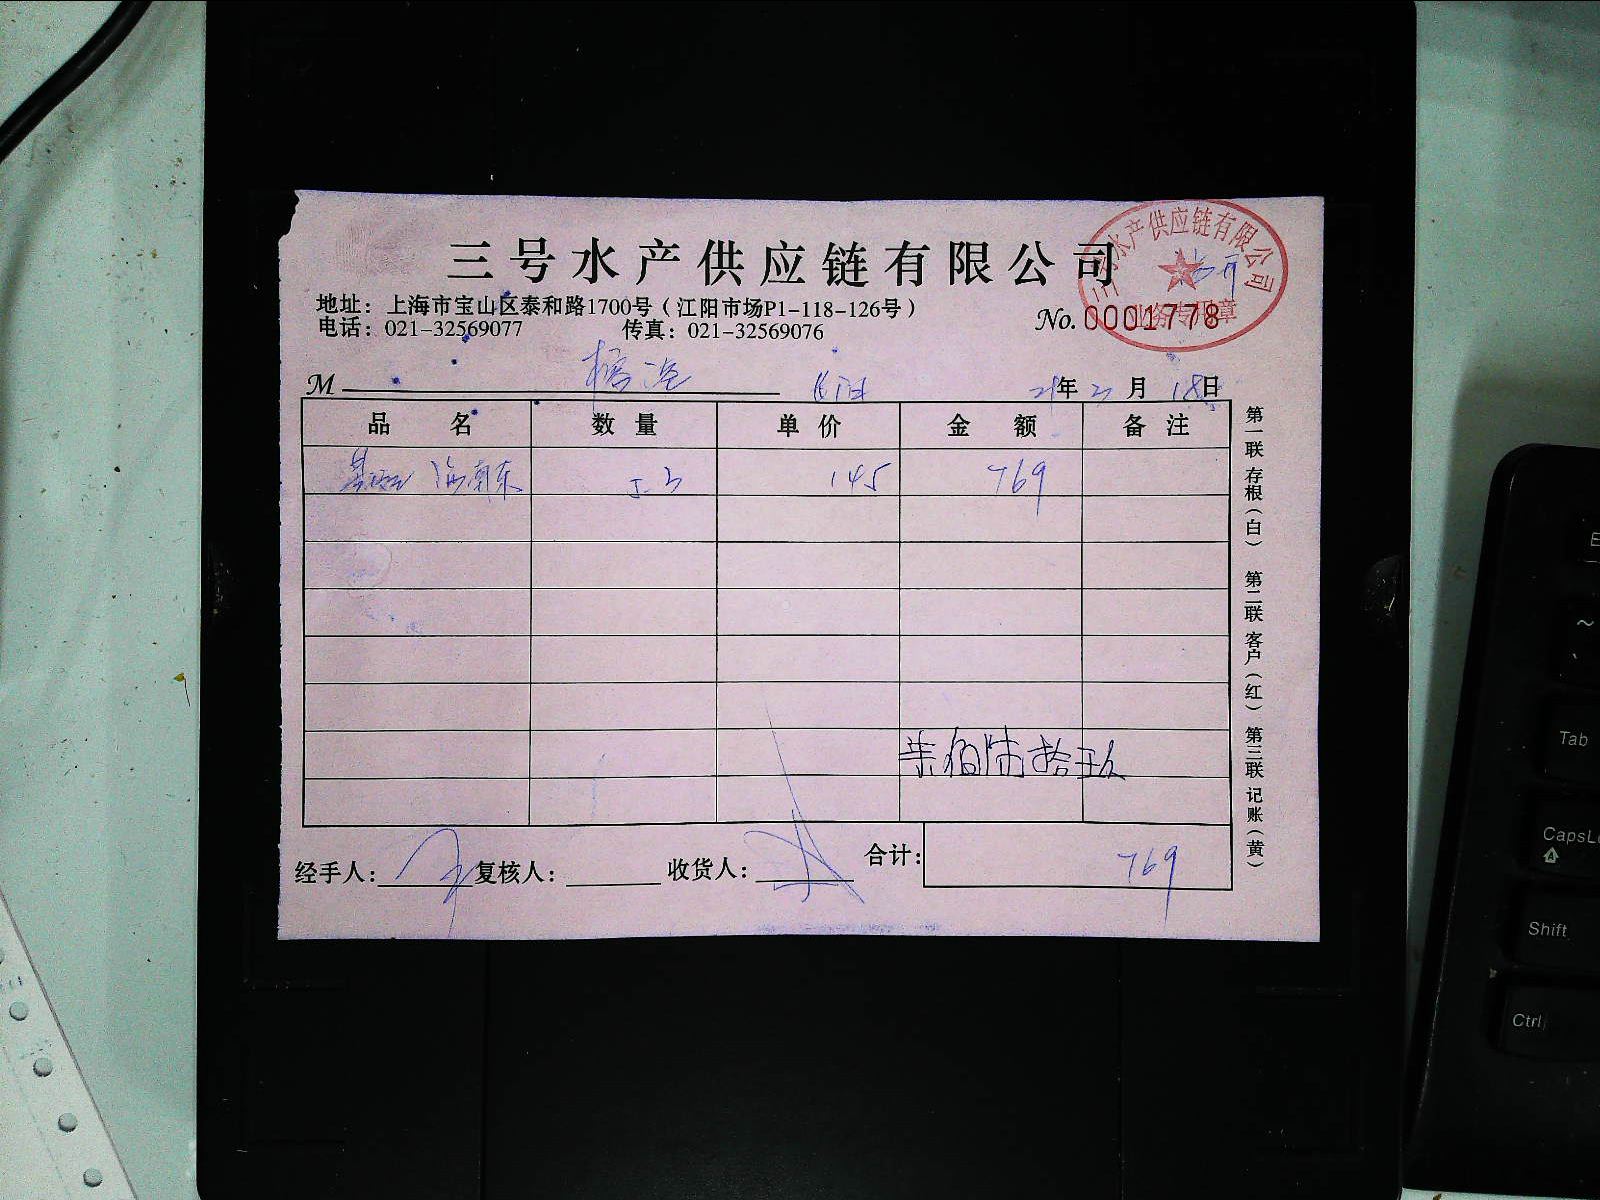 三号水产供应链有限公司
三号水产供应链有限公司
业务专用章
地址：上海市宝山区泰和路1700号（江阳市场P1-118-126号）
电话：021-32569077 传真：021-32569076
No. 0001778
M
21年3月18日
品名 数量 单价 金额 备注
海南东 5.3 145 769
柒佰陆拾玖
经手人： 复核人： 收货人： 合计： 769
第一联 存根（白） 第二联 客户（红） 第三联 记账（黄）
E
~
Tab
CapsLo
Shift
Ctrl